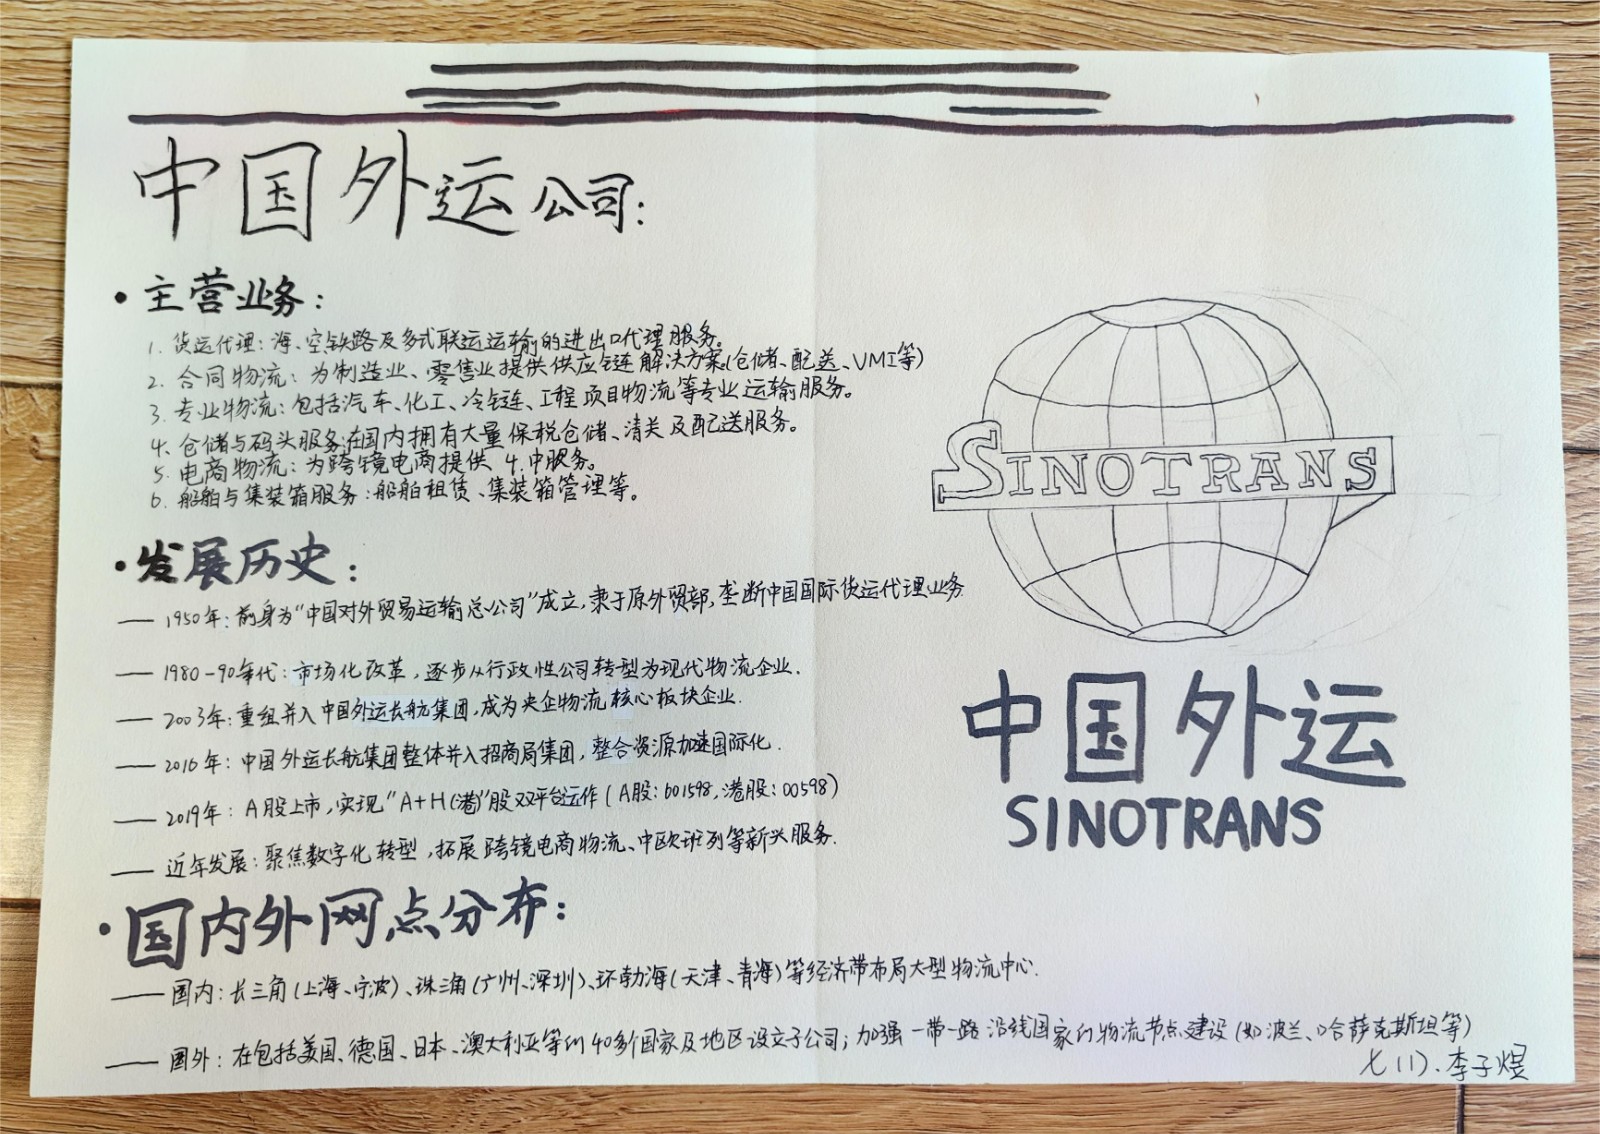 中国外运公司:
• 主营业务:
1. 货运代理: 海、空铁路及多式联运运输的进出口代理服务。
2. 合同物流: 为制造业、零售业提供供应链解决方案(仓储、配送、VMI等)
3. 专业物流: 包括汽车、化工、冷链、工程项目物流等专业运输服务。
4. 仓储与码头服务:在国内拥有大量保税仓储、清关及配送服务。
5. 电商物流: 为跨镜电商提供 4.中服务。
6. 船舶与集装箱服务: 船舶租赁、集装箱管理等。
• 发展历史:
—— 1950年: 前身为“中国对外贸易运输总公司”成立, 隶于原外贸部, 垄断中国国际货运代理业务
—— 1980-90年代: 市场化改革, 逐步从行政性公司转型为现代物流企业.
—— 2003年: 重组并入中国外运长航集团, 成为央企物流核心板块企业.
—— 2016年: 中国外运长航集团整体并入招商局集团, 整合资源加速国际化.
—— 2019年: A股上市, 实现“A+H(港)”股双平台运作 (A股: 601598, 港股: 00598)
—— 近年发展: 聚焦数字化转型, 拓展跨镜电商物流、中欧班列等新兴服务.
• 国内外网点分布:
—— 国内: 长三角(上海、宁波)、珠三角(广州、深圳)、环勃海(天津、青海)等经济带布局大型物流中心.
—— 国外: 在包括美国、德国、日本、澳大利亚等的40多个国家及地区设立子公司; 加强一带一路沿线国家的物流节点建设 (如波兰、哈萨克斯坦等)
SINOTRANS
中国外运
SINOTRANS
七(1).李子煜